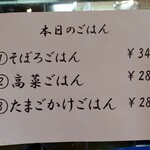 本日のごはん
①そぼろごはん ¥34
②高菜ごはん ¥28
③たまごかけごはん ¥28